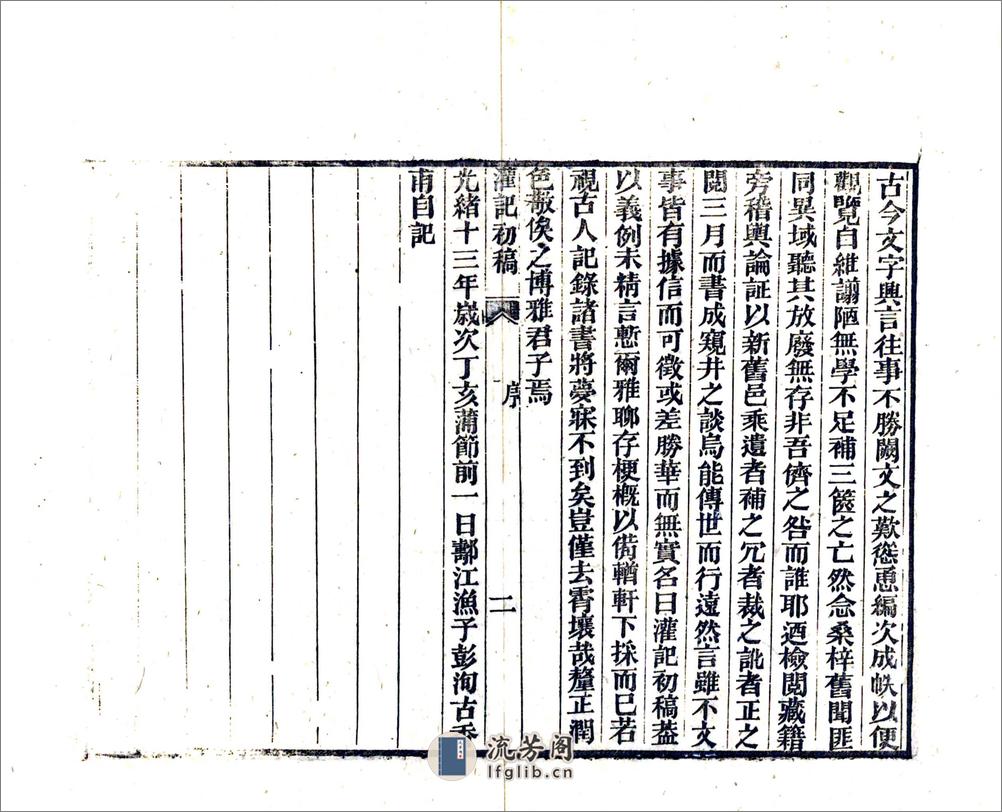 古今文字興言往事不勝闕文之歎慫恿編次成帙以便
觀覽自維謭陋無學不足補三篋之亡然念桑梓舊聞匪
同異域聽其放廢無存非吾儕之咎而誰耶迺檢閱藏籍
旁稽輿論証以新舊邑乘遺者補之冗者裁之訛者正之
閱三月而書成窺井之談烏能傳世而行遠然言雖不文
事皆有據信而可徵或差勝華而無實名曰灌記初稿蓋
以義例未精言慙爾雅聊存梗概以俻輶軒下採而已若
視古人記錄諸書將夢寐不到矣豈僅去霄壤哉釐正潤
色敬俟之博雅君子焉
灌記初稿 序 二
光緒十三年歲次丁亥蒲節前一日鄩江漁子彭洵古香
甫自記
流芳阁
lfglib.cn